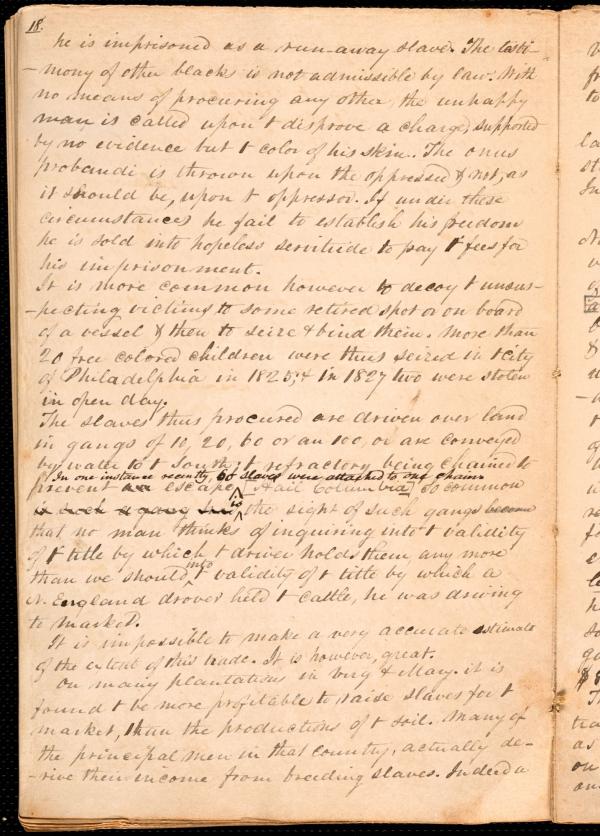 18.
he is imprisoned as a run-away slave. The testi-
-mony of other blacks is not admissible by law. With
no means of procuring any other, the unhappy
man is called upon t disprove a charge, supported
by no evidence but t color of his skin. The onus
probandi is thrown upon the oppressed & not, as
it should be, upon t oppressor. If under these
circumstances he fail to establish his freedom
he is sold into hopeless servitude to pay t fees for
his imprisonment.
It is more common however to decoy t unsus-
-pecting victims to some retired spot or on board
of a vessel & then to seize & bind them. More than
20 free colored children were thus seized in t city
of Philadelphia in 1825, & in 1827 two were stolen
in open day.
The slaves thus procured are driven over land
in gangs of 10, 20, 60 or an 100, or are conveyed
by water to t South; t refractory being chained to
In one instance recently, 60 slaves were attached to one chain
prevent an escape. Hail Columbia! So common
is such a gang
is the sight of such gangs become
that no man thinks of inquiring into t validity
of t title by which t driver holds them, any more
than we should into t validity of t title by which a
N. England drover held t cattle, he was driving
to market.
It is impossible to make a very accurate estimate
of the extent of this trade. It is however, great.
On many plantations in Virg & Mary. it is
found t be more profitable to raise slaves for t
market, than the productions of t soil. Many of
the principal men in that country, actually de-
-rive their income from breeding slaves. Indeed a